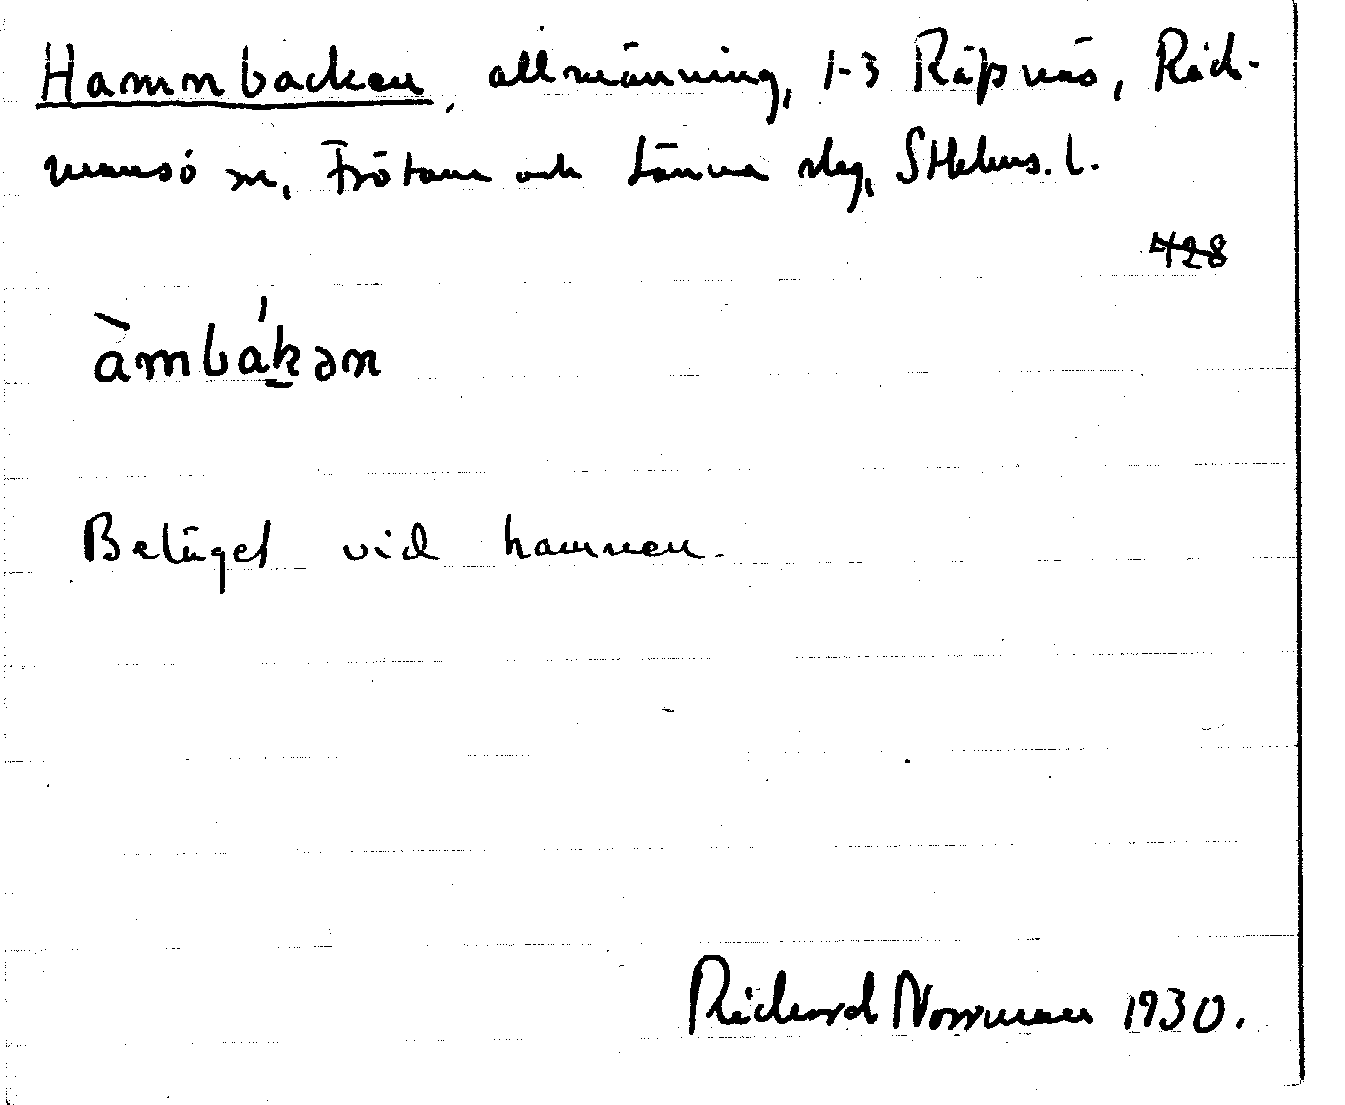 Hamnbacken, allmänning, 1-3 Räfsnäs, Råd-
mansö sn, Frötuna och Länna slg, Sthlms. l.
428
àmbákən
Beläget vid hamnen.
Rickard Norrman 1930.